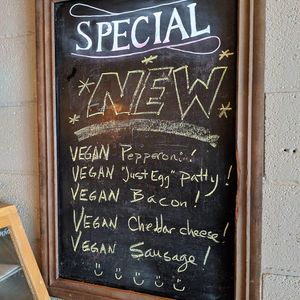 SPECIAL
NEW
VEGAN Pepperoni!
VEGAN "Just Egg" patty!
VEGAN Bacon!
VEGAN Cheddar cheese!
VEGAN Sausage!